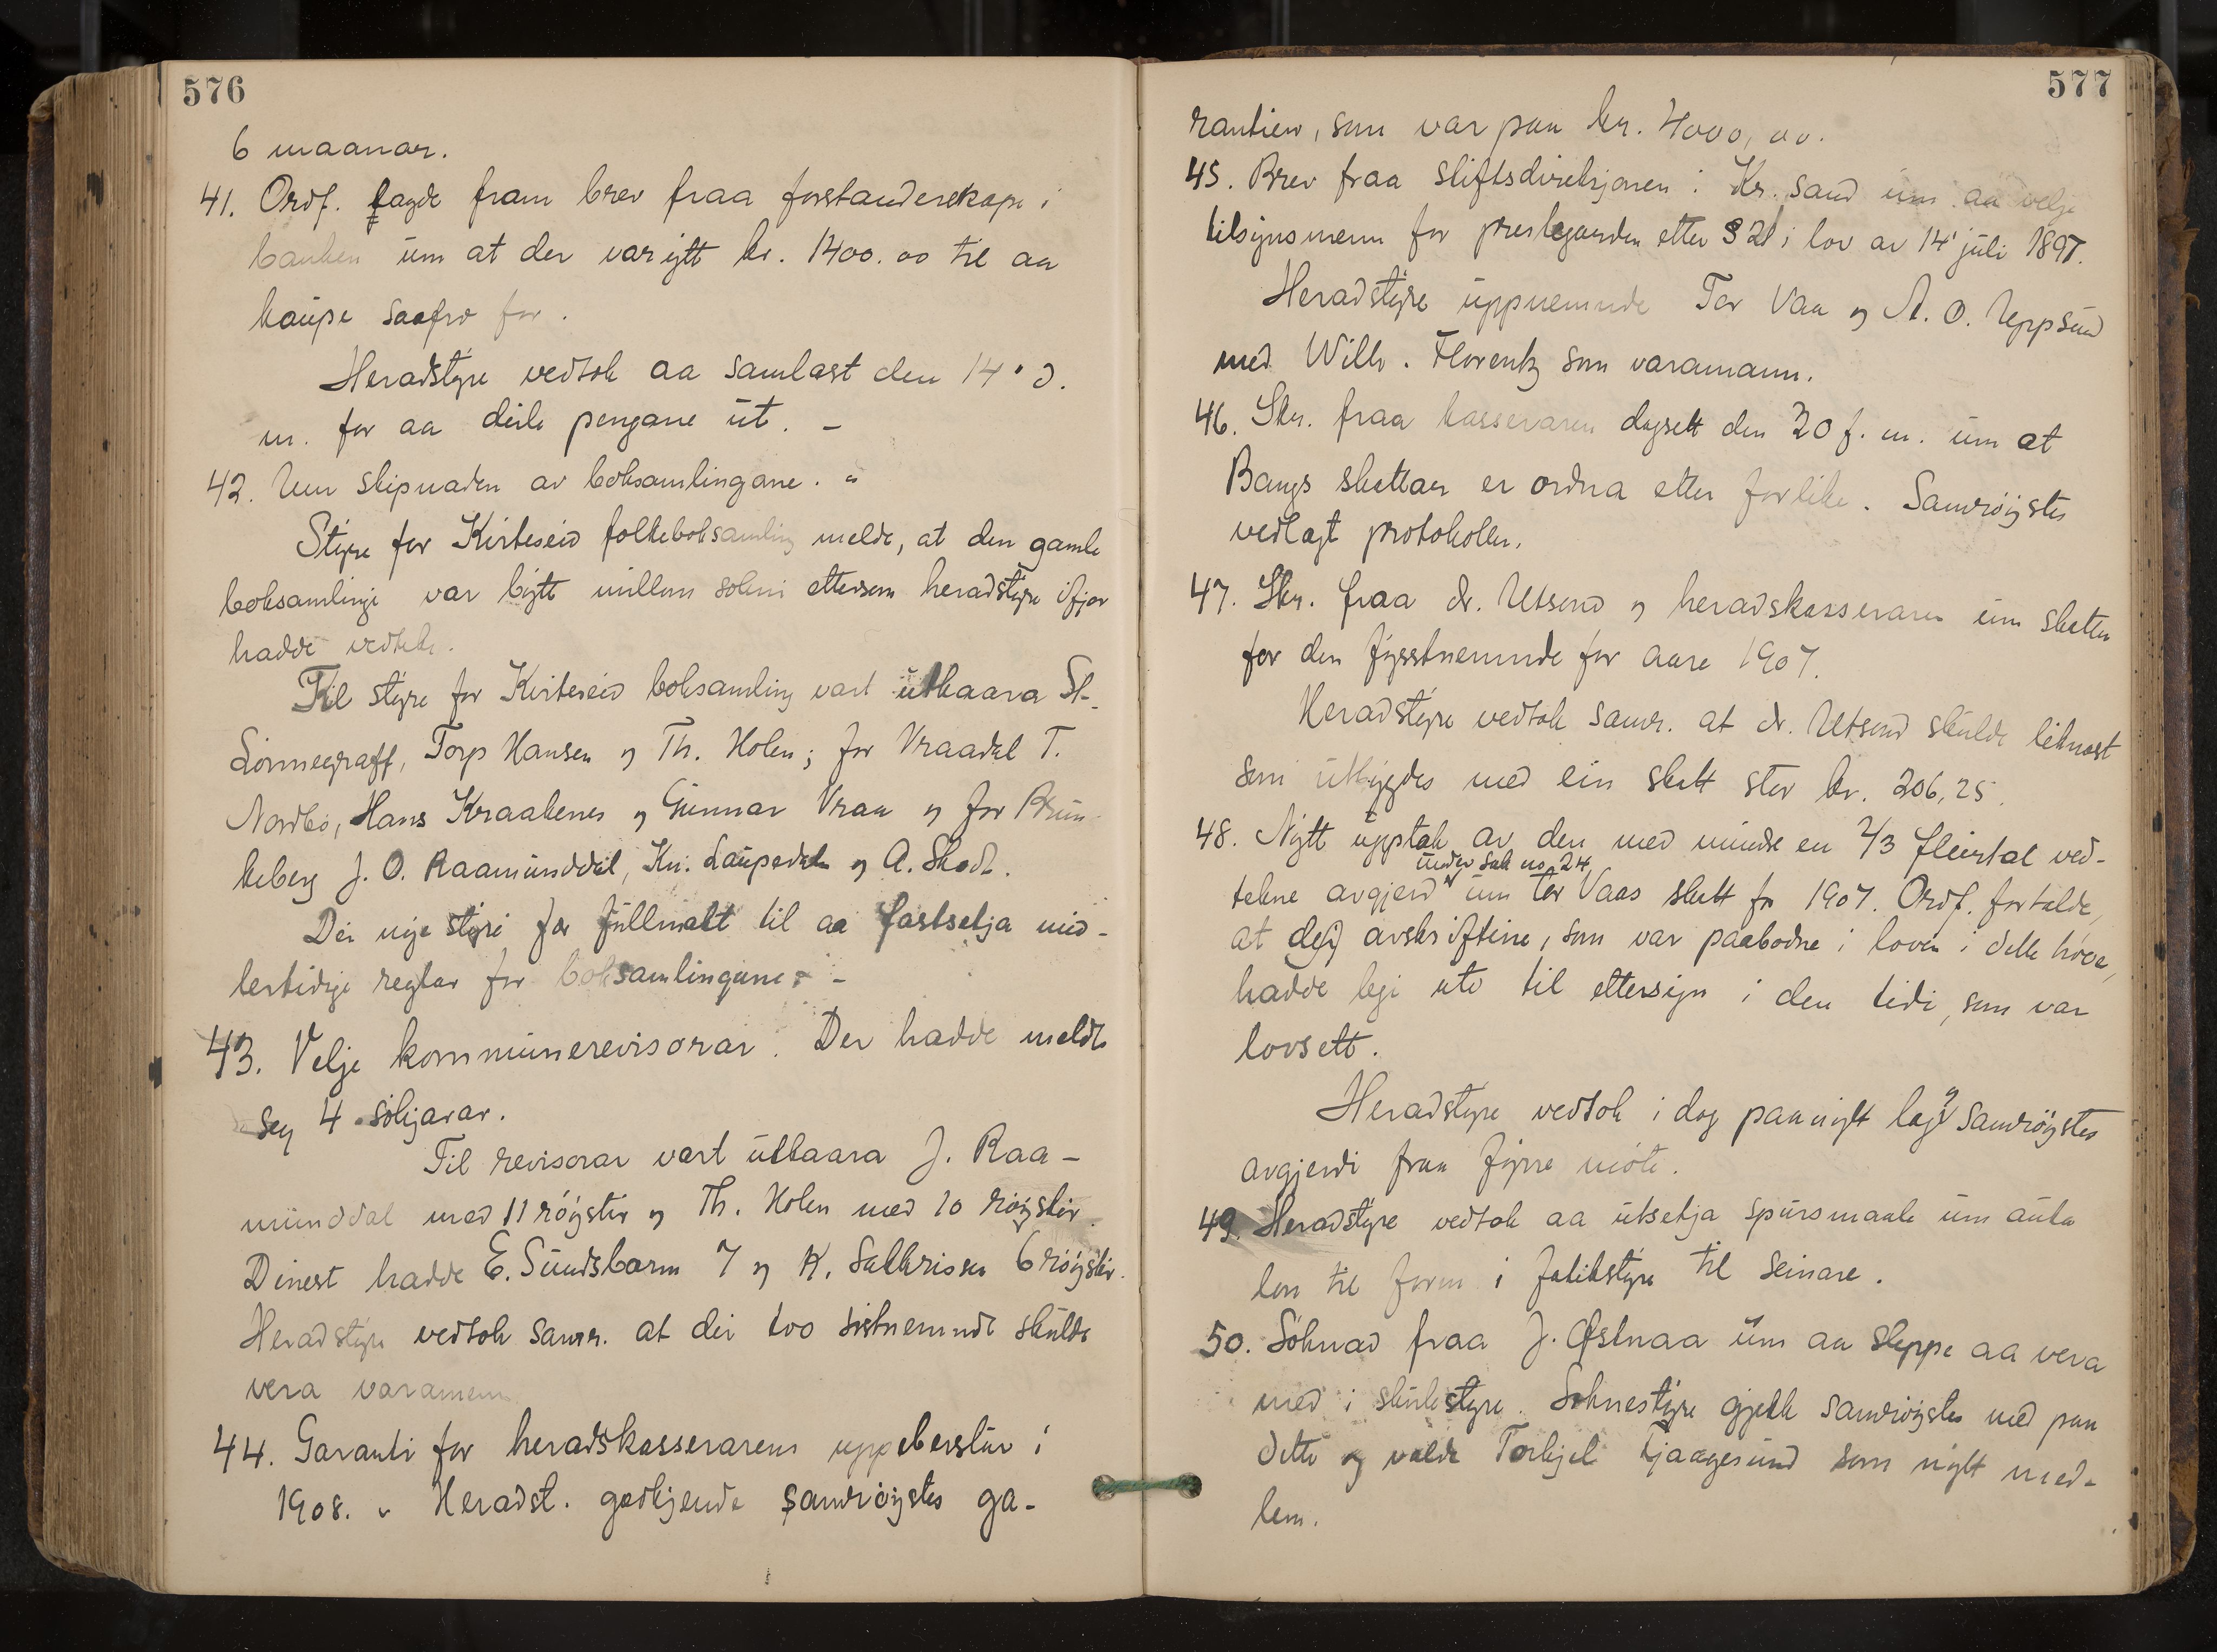 576
6 maanar.
41. Ordf. lagde fram brev fraa forstanderskapi i
banken um at der var ytt kr. 1400.00 til aa
kaupe saafrø for.
Heradstyre vedtok aa samlast den 14' d.
m. for aa deile pengane ut. -
42. Um skipnaden av boksamlingane. -
Styre for Kviteseid folkeboksamling melde, at den gamle
boksamlingi var bytt millom sokni ettersom heradstyre ifjor
hadde vedteke.
Til styre for Kviteseid boksamling vart utkaara St.
Lönnegraff, Torp Hansen og Th. Holen; for Vraadal T.
Nordbö, Hans Kraakenes og Gunnar Vraa og for Brun-
keberg J. O. Raamunddal, Kn. Laupedalen og A. Skodt.
Dei nye styri fær fullmakt til aa fastsetja mid-
lertidige reglar for boksamlingane. -
43. Velje kommunerevisorar. Der hadde meldt
seg 4 sökjarar.
Til revisorar vart utkaara J. Raa-
munddal med 11 röyster og Th. Holen med 10 röyster.
Dinest hadde E. Sundsbarm 7 og K. Salkrisen 6 röyster.
Heradstyre vedtok samr. at dei tvo sistnemnde skulde
vera varamenn
44. Garanti for heradskasserarens uppeberslur i
1908. - Heradst. godkjende samröystes ga-
577
rantien, som var paa kr. 4000,00.
45. Brev fraa stiftsdireksjonen i Kr.sand um aa velje
tilsynsmenn for prestegarden etter § 21 i lov av 14' juli 1897.
Heradstyre uppnemnde Tor Vaa og A. O. Uppsund
med Wilh. Florentz som varamann.
46. Skr. fraa kasseraren dagsett den 30 f. m. um at
Bangs skattar er ordna etter forlike. Samröystes
vedlagt protokollen.
47. Skr. fraa dr. Utsond og heradskasseraren um skatten
for den fyrstnemnde for aare 1907.
Heradstyre vedtok samr. at dr. Utsond skulde liknast
som utbygdes med ein skatt stor kr. 206,25.
48. Nytt upptak av den med mindre en 2/3 fleirtal ved-
under sak no. 24
tekne avgjerd um Tor Vaas skatt for 1907. Ordf. fortalde,
at dei avskriftine, som var paabodne i loven i dette höve,
hadde legi ute til ettersyn i den tidi, som var
lovsett.
Heradstyre vedtok i dag paa nytt lag og samröystes
avgjerdi fraa fyrre möte.
49. Heradstyre vedtok aa utsetja spursmaale um auka
lön til form. i fatikstyre til seinare.
50. Söknad fraa J. Østnaa um aa sleppe aa vera
med i skulestyre. Soknestyre gjekk samröystes med paa
dette og valde Torkjel Fjaagesund som nytt med-
lem.